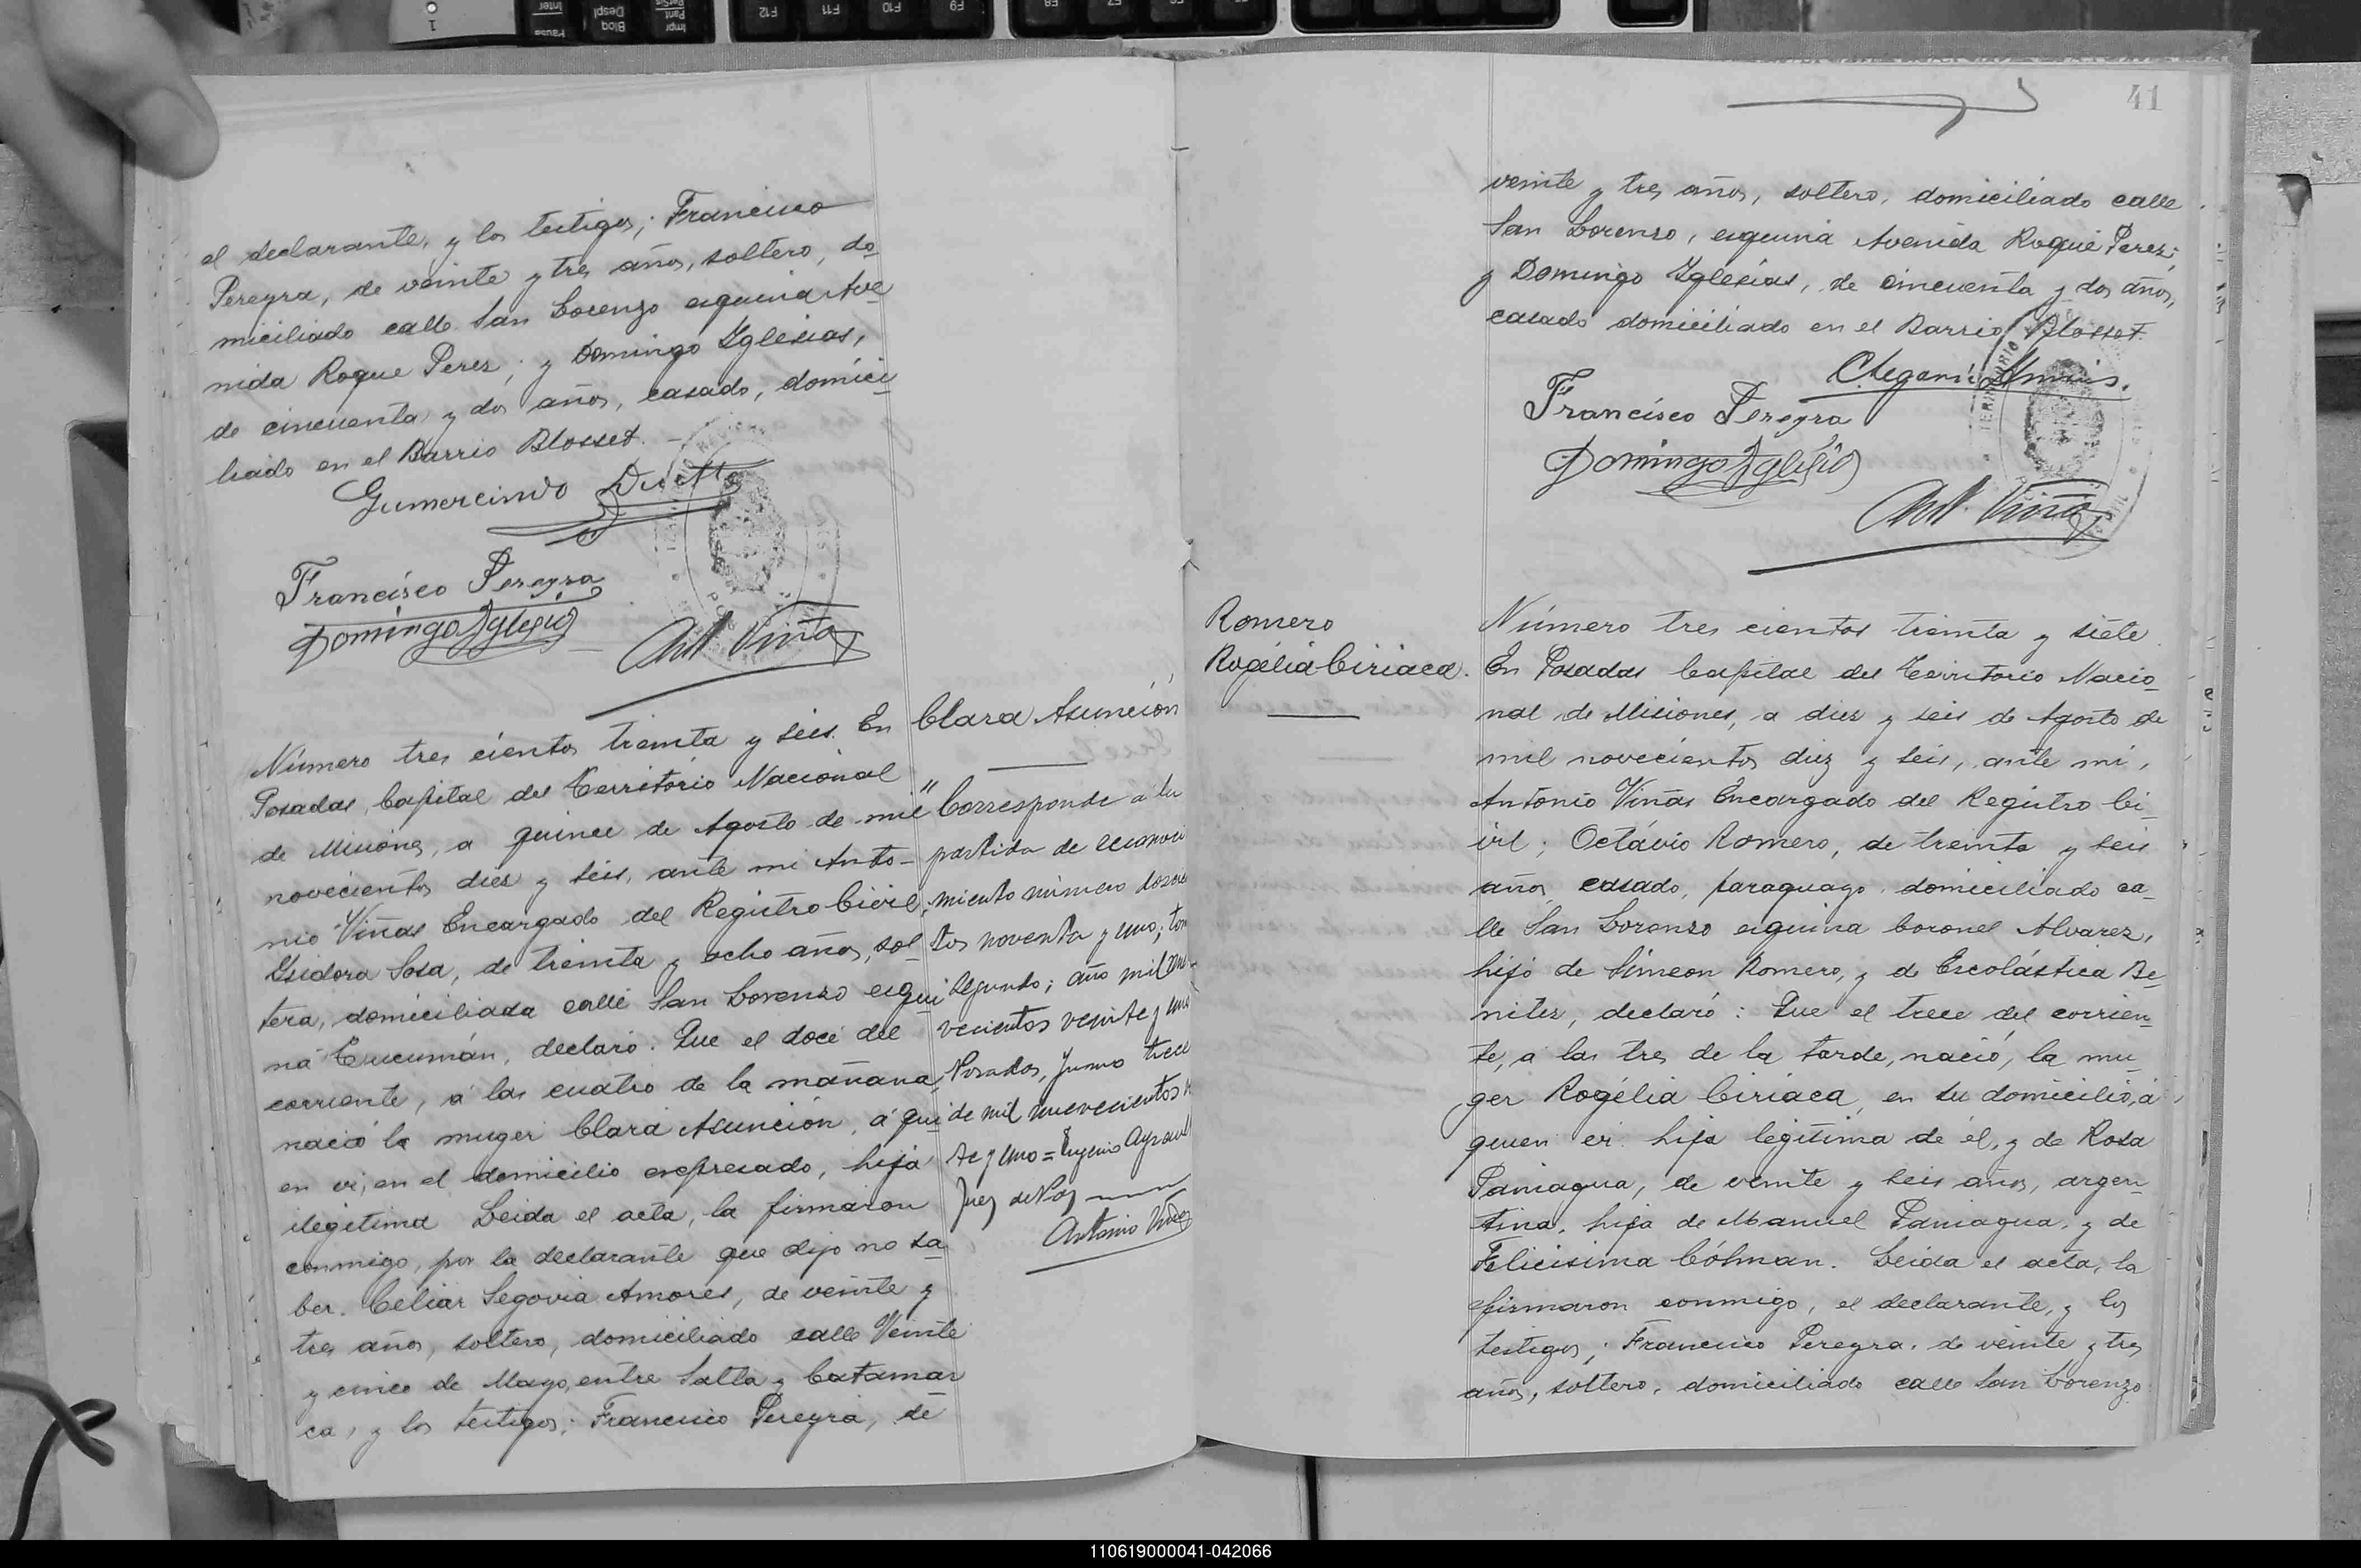 el declarante, y los testigos; Francisco
Pereyra, de veinte y tres años, soltero, do
miciliado calle San Lorenzo esquina Ave
nida Roque Perez; y Domingo Yglesias,
de cincuenta y dos años, casado, domici
liado en el Barrio Blosset.
Gumercindo
Francisco Pereyra
Domingo Yglesias
Ant. Viñas
Número tres cientos treinta y seis. En
Posadas, Capital del Territorio Nacional
de Misiones, a quince de Agosto de mil
novecientos diez y seis, ante mi Anto-
nio Viñas Encargado del Registro Civil,
Ysidora Sosa, de treinta y ocho años, sol
tera, domiciliada calle San Lorenzo esqui
na Tucumán, declaró: Que el doce del
corriente, á las cuatro de la mañana,
nació la muger Clara Asunción, á qui
en vi, en el domicilio expresado, hija
ilegitima Leida el acta, la firmaron
conmigo, por la declarante que dijo no sa
ber. Celiar Segovia Amores, de veinte y
tres años, soltero, domiciliado calle Veinte
y cinco de Mayo, entre Salta y Catamar
ca, y los testigos; Francisco Pereyra, de
Clara Asunción
"Corresponde a la
partida de reconoci
miento número
tos noventa y uno, tom
segundo; año mil no-
vecientos veinte y uno
Posadas, Junio trece
de mil nuevecientos
te y uno = Eugenio
Juez de Paz
Antonio Viñas
41
veinte y tres años, soltero, domiciliado calle
San Lorenzo, esquina Avenida Roque Perez;
y Domingo Yglesias, de cincuenta y dos años,
casado domiciliado en el Barrio Blosset.
Francisco Pereyra
Domingo Yglesias
Ant. Viñas
Romero
Rogélia Ciriaca.
Número tres cientos treinta y siete.
En Posadas Capital del Territorio Nacio
nal de Misiones, a diez y seis de Agosto de
mil novecientos diez y seis, ante mi,
Antonio Viñas Encargado del Registro Ci
vil; Octávio Romero, de treinta y seis
años, casado, paraguayo, domiciliado ca-
lle San Lorenzo esquina Coronel Alvarez,
hijo de Simeon Romero, y de Escolástica Be
nitez, declaró: Que el trece del corrien
te, a las tres de la tarde, nació, la mu
ger Rogélia Ciriaca, en su domicilio, á
quien vi. hija legitima de él, y de Rosa
Paniagua, de veinte y seis años, argen
tina, hija de Manuel Paniagua, y de
Felicisima Cólman. Leida el acta, la
firmaron conmigo, el declarante, y los
testigos; Francisco Pereyra, de veinte y tres
años, soltero, domiciliado calle San Lorenzo
110619000041-042066